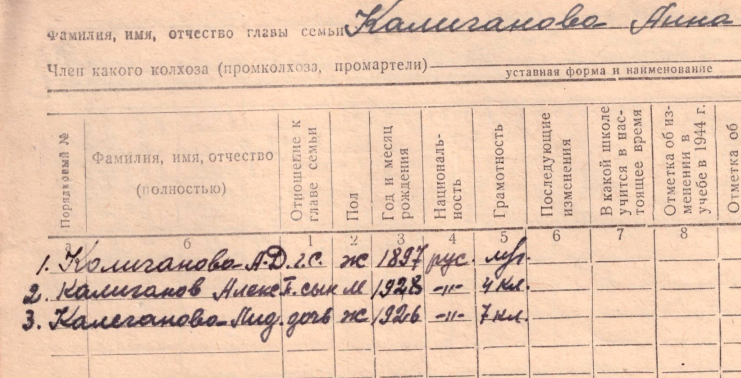 Фамилия, имя, отчество главы семьи Калиганова Анна
Член какого колхоза (промколхоза, промартели)
уставная форма и наименование
Порядковый №
Фамилия, имя, отчество
(полностью)
Отношение к
главе семьи
Пол
Год и месяц
рождения
Националь-
ность
Грамотность
Последующие
изменения
В какой школе
учится в нас-
тоящее время
Отметка об из-
менении в
учебе в 1944 г.
Отметка об
а б 1 2 3 4 5 6 7 8
1. Калиганова А.Д. г.с. ж 1897 рус.
2. Калиганов Алекс. сын м 1928 -"- 4 кл.
3. Калеганова Лид. дочь ж 1926 -"- 7 кл.